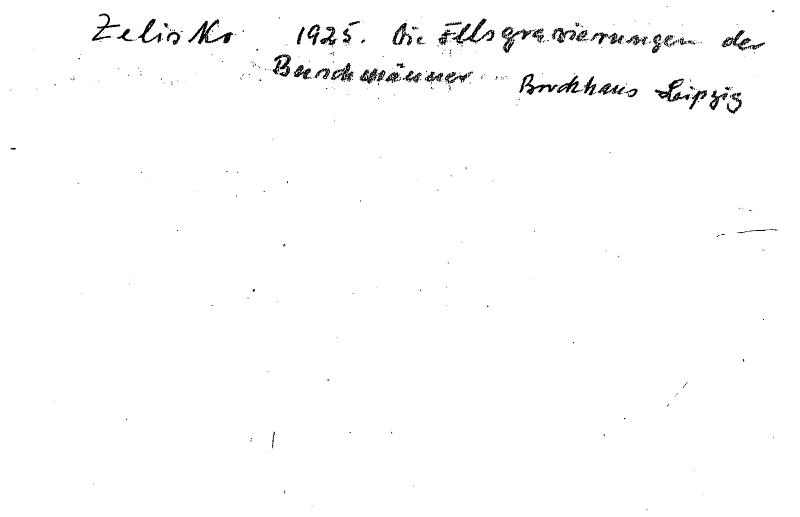 Zelisko 1925. Die Felsgravierungen der
Buschmänner Brockhaus Leipzig